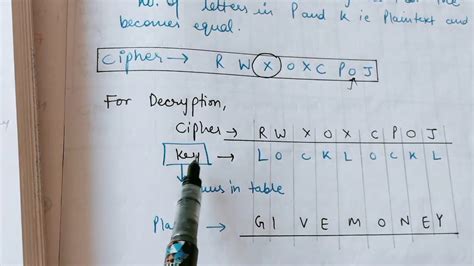 letters in P and K ie Plaintext and
becomes equal.
Cipher → R W X O X C P O J
For Decryption,
Cipher → R W X O X C P O J
Key → L O C K L O C K L
in table
G I V E M O N E Y